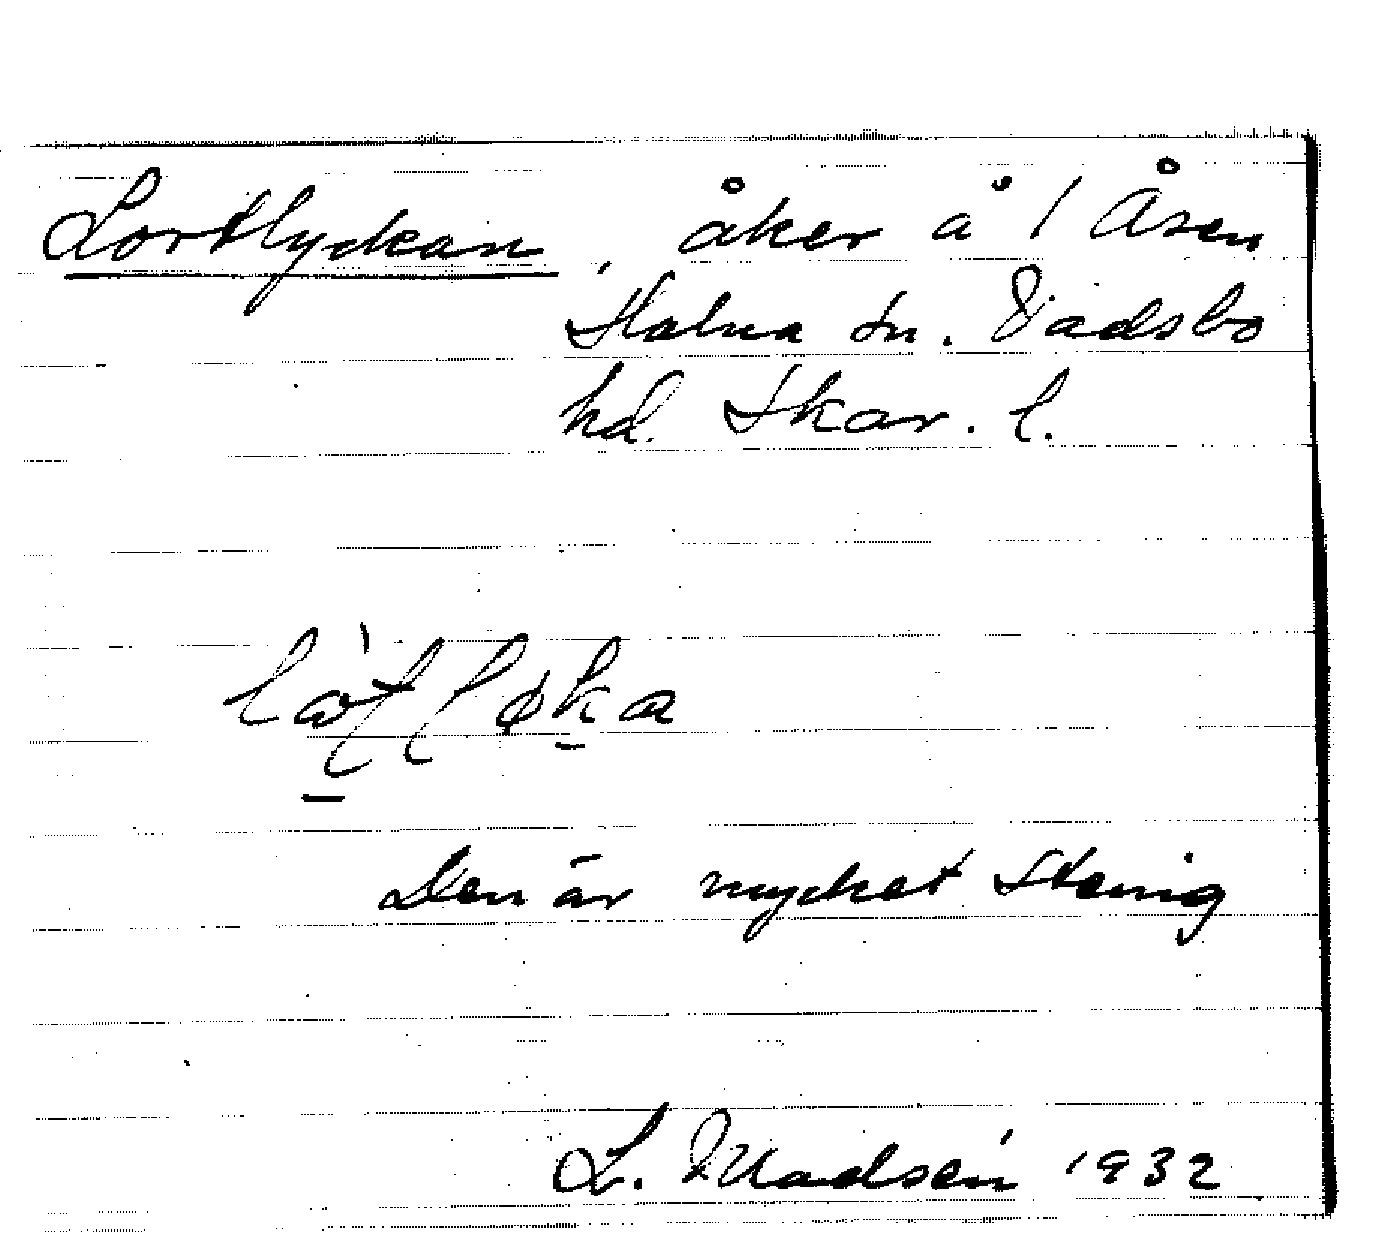 Lortlyckan, åker å 1 Åsen
Halna sn. Vadsbo
hd. Skar. l.
Den är mycket stenig
L. Madsén 1932